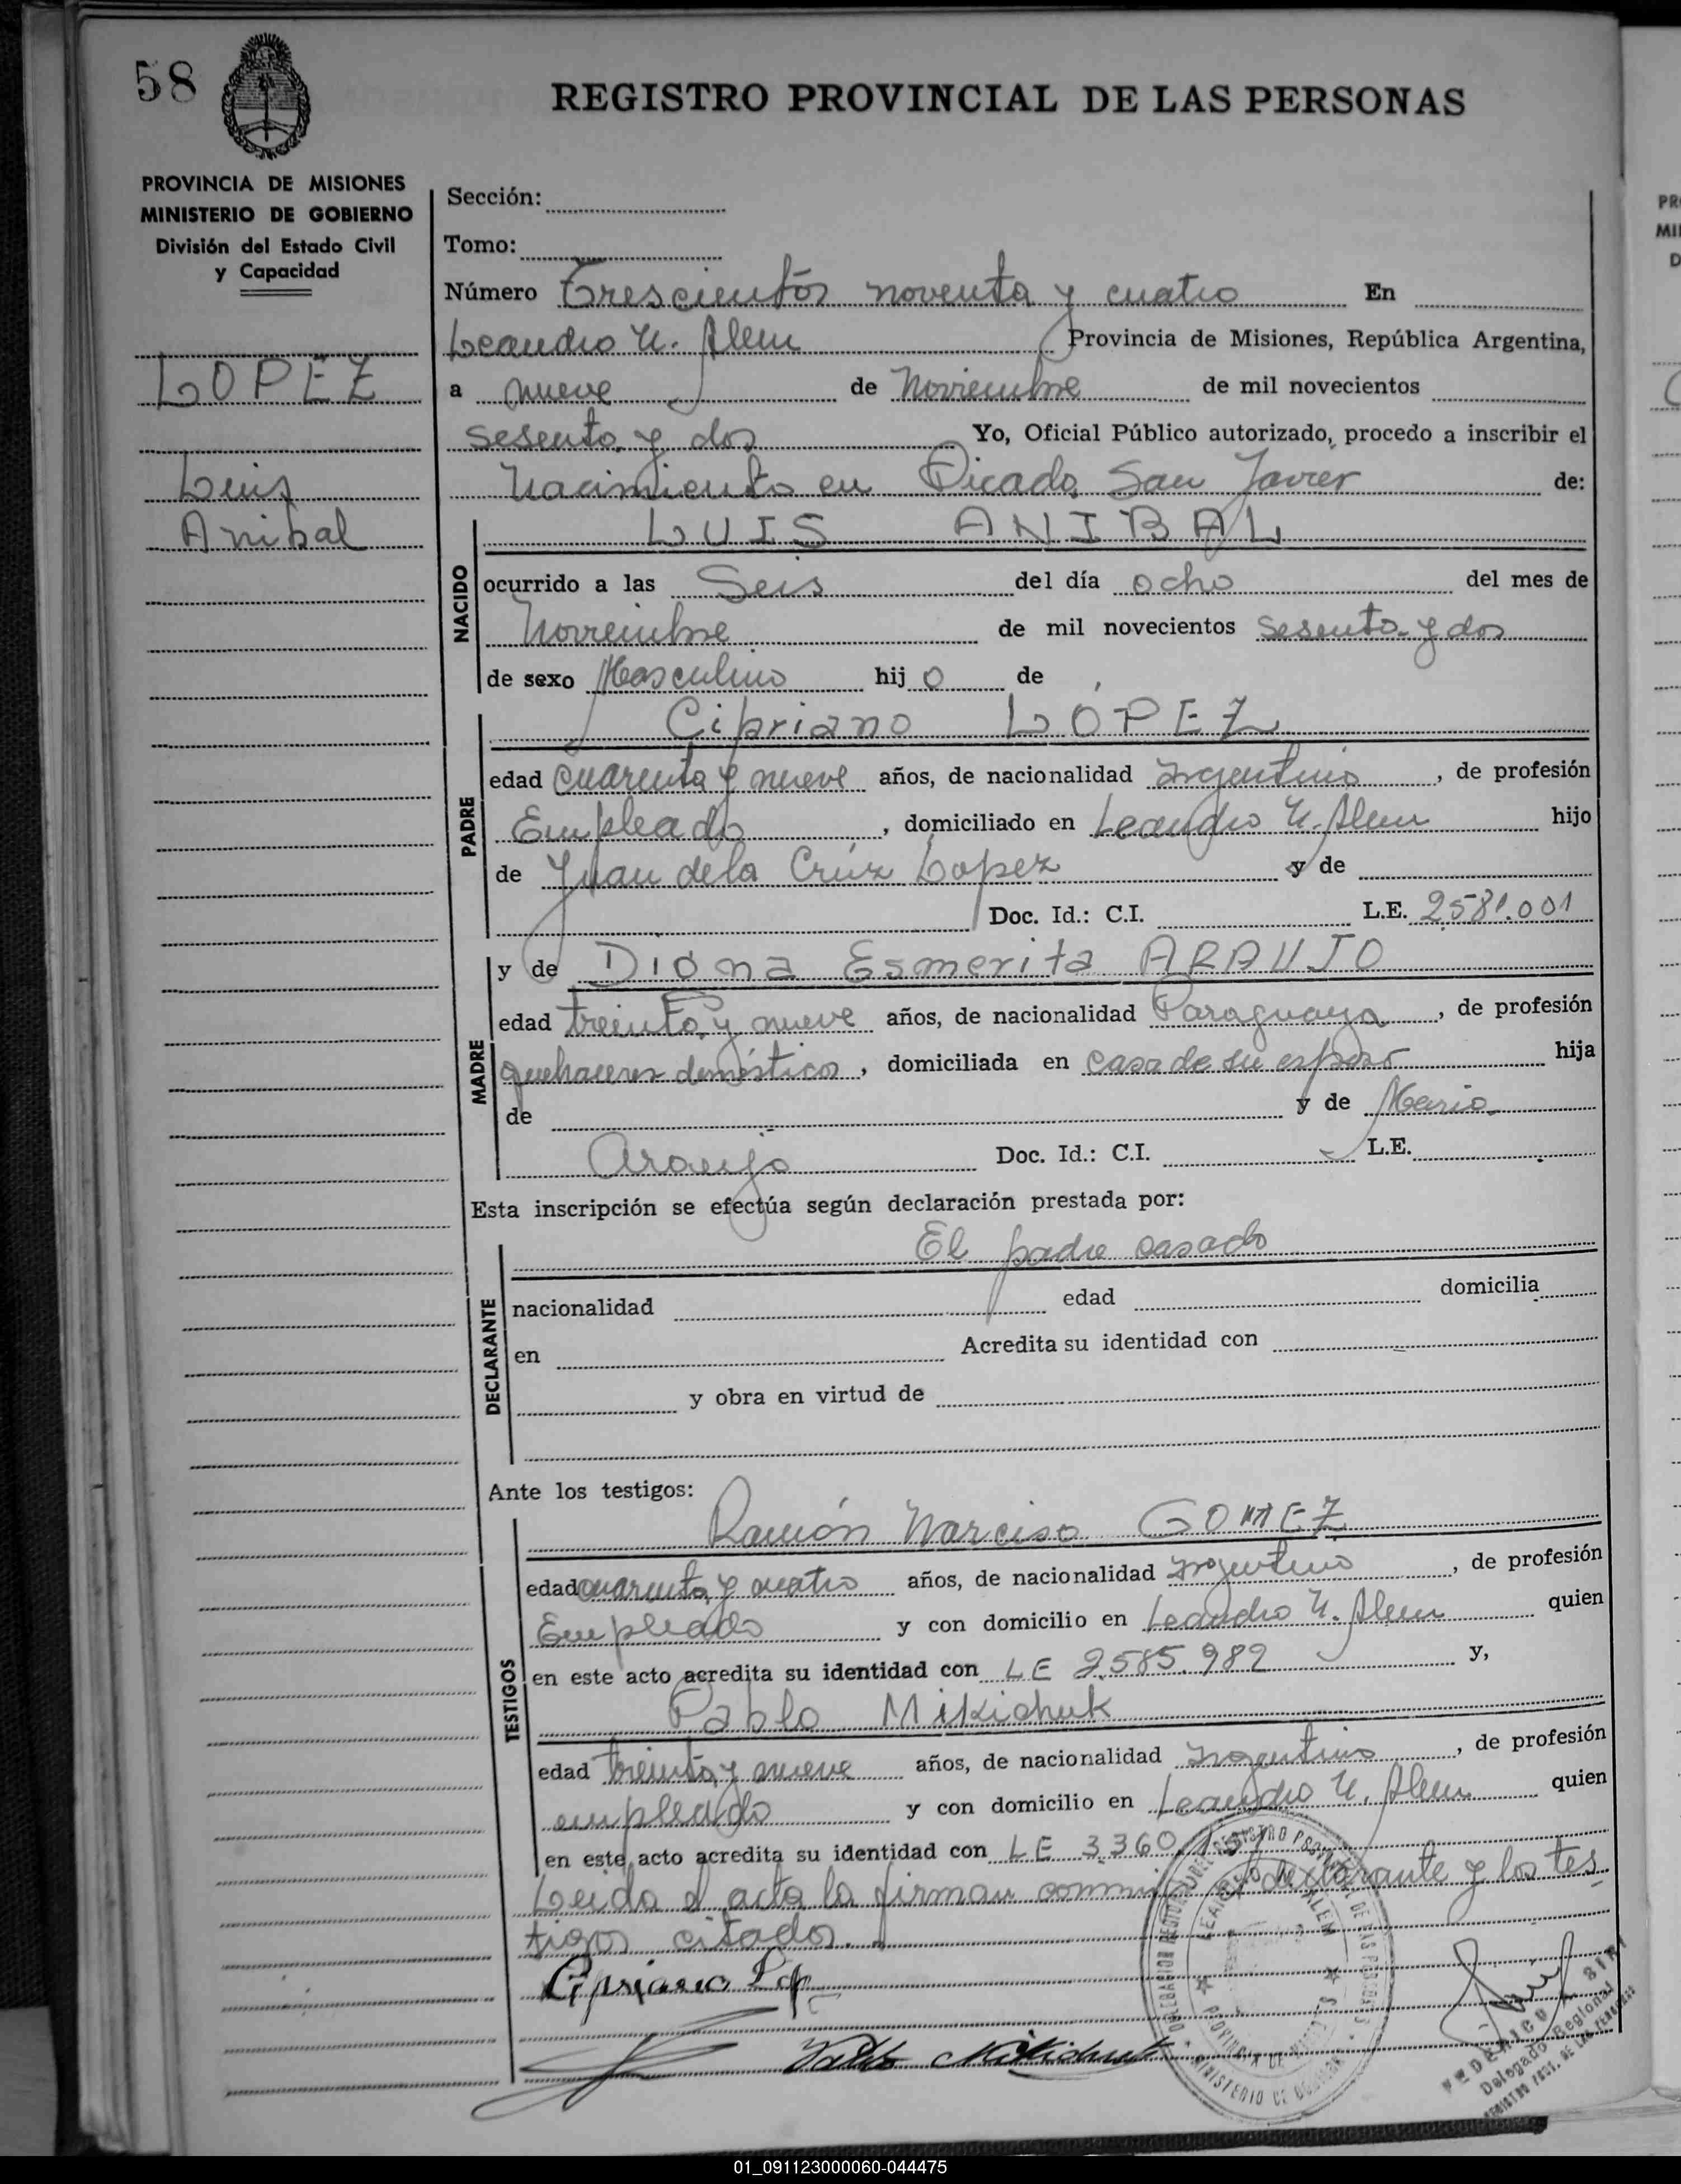 58
REGISTRO PROVINCIAL DE LAS PERSONAS
PROVINCIA DE MISIONES
MINISTERIO DE GOBIERNO
División del Estado Civil
y Capacidad
LOPEZ
Luis
Anibal
Sección:
Tomo:
Número Trescientos noventa y cuatro En
Leandro N. Alem Provincia de Misiones, República Argentina,
a nueve de Noviembre de mil novecientos
sesenta y dos Yo, Oficial Público autorizado, procedo a inscribir el
Nacimiento en Picada San Javier de:
NACIDO
LUIS ANIBAL
ocurrido a las Seis del día ocho del mes de
Noviembre de mil novecientos sesenta y dos
de sexo Masculino hij o de
PADRE
Cipriano LÓPEZ
edad cuarenta y nueve años, de nacionalidad Argentino, de profesión
Empleado, domiciliado en Leandro N. Alem hijo
de Juan de la Crúz Lopez y de
Doc. Id.: C.I. L.E. 2581.001
MADRE
y de Dióna Esmerita ARAUJO
edad treinta y nueve años, de nacionalidad Paraguaya, de profesión
quehaceres domésticos, domiciliada en casa de su esposo hija
de y de Maria
Araujo Doc. Id.: C.I. L.E.
Esta inscripción se efectúa según declaración prestada por:
DECLARANTE
El padre casado
nacionalidad edad domicilia
en Acredita su identidad con
y obra en virtud de
Ante los testigos:
TESTIGOS
Ramón Narciso GOMEZ
edad cuarenta y cuatro años, de nacionalidad Argentino, de profesión
Empleado y con domicilio en Leandro N. Alem quien
en este acto acredita su identidad con LE 2.585.982 y,
Pablo Mikichuk
edad treinta y nueve años, de nacionalidad Argentino, de profesión
empleado y con domicilio en Leandro N. Alem quien
en este acto acredita su identidad con LE 3.360.
Leida el acta la firman conmigo el declarante y los tes
tigos citados.
Cipriano Lop
Pablo Mikichuk
Delegado Regional
01_091123000060-044475